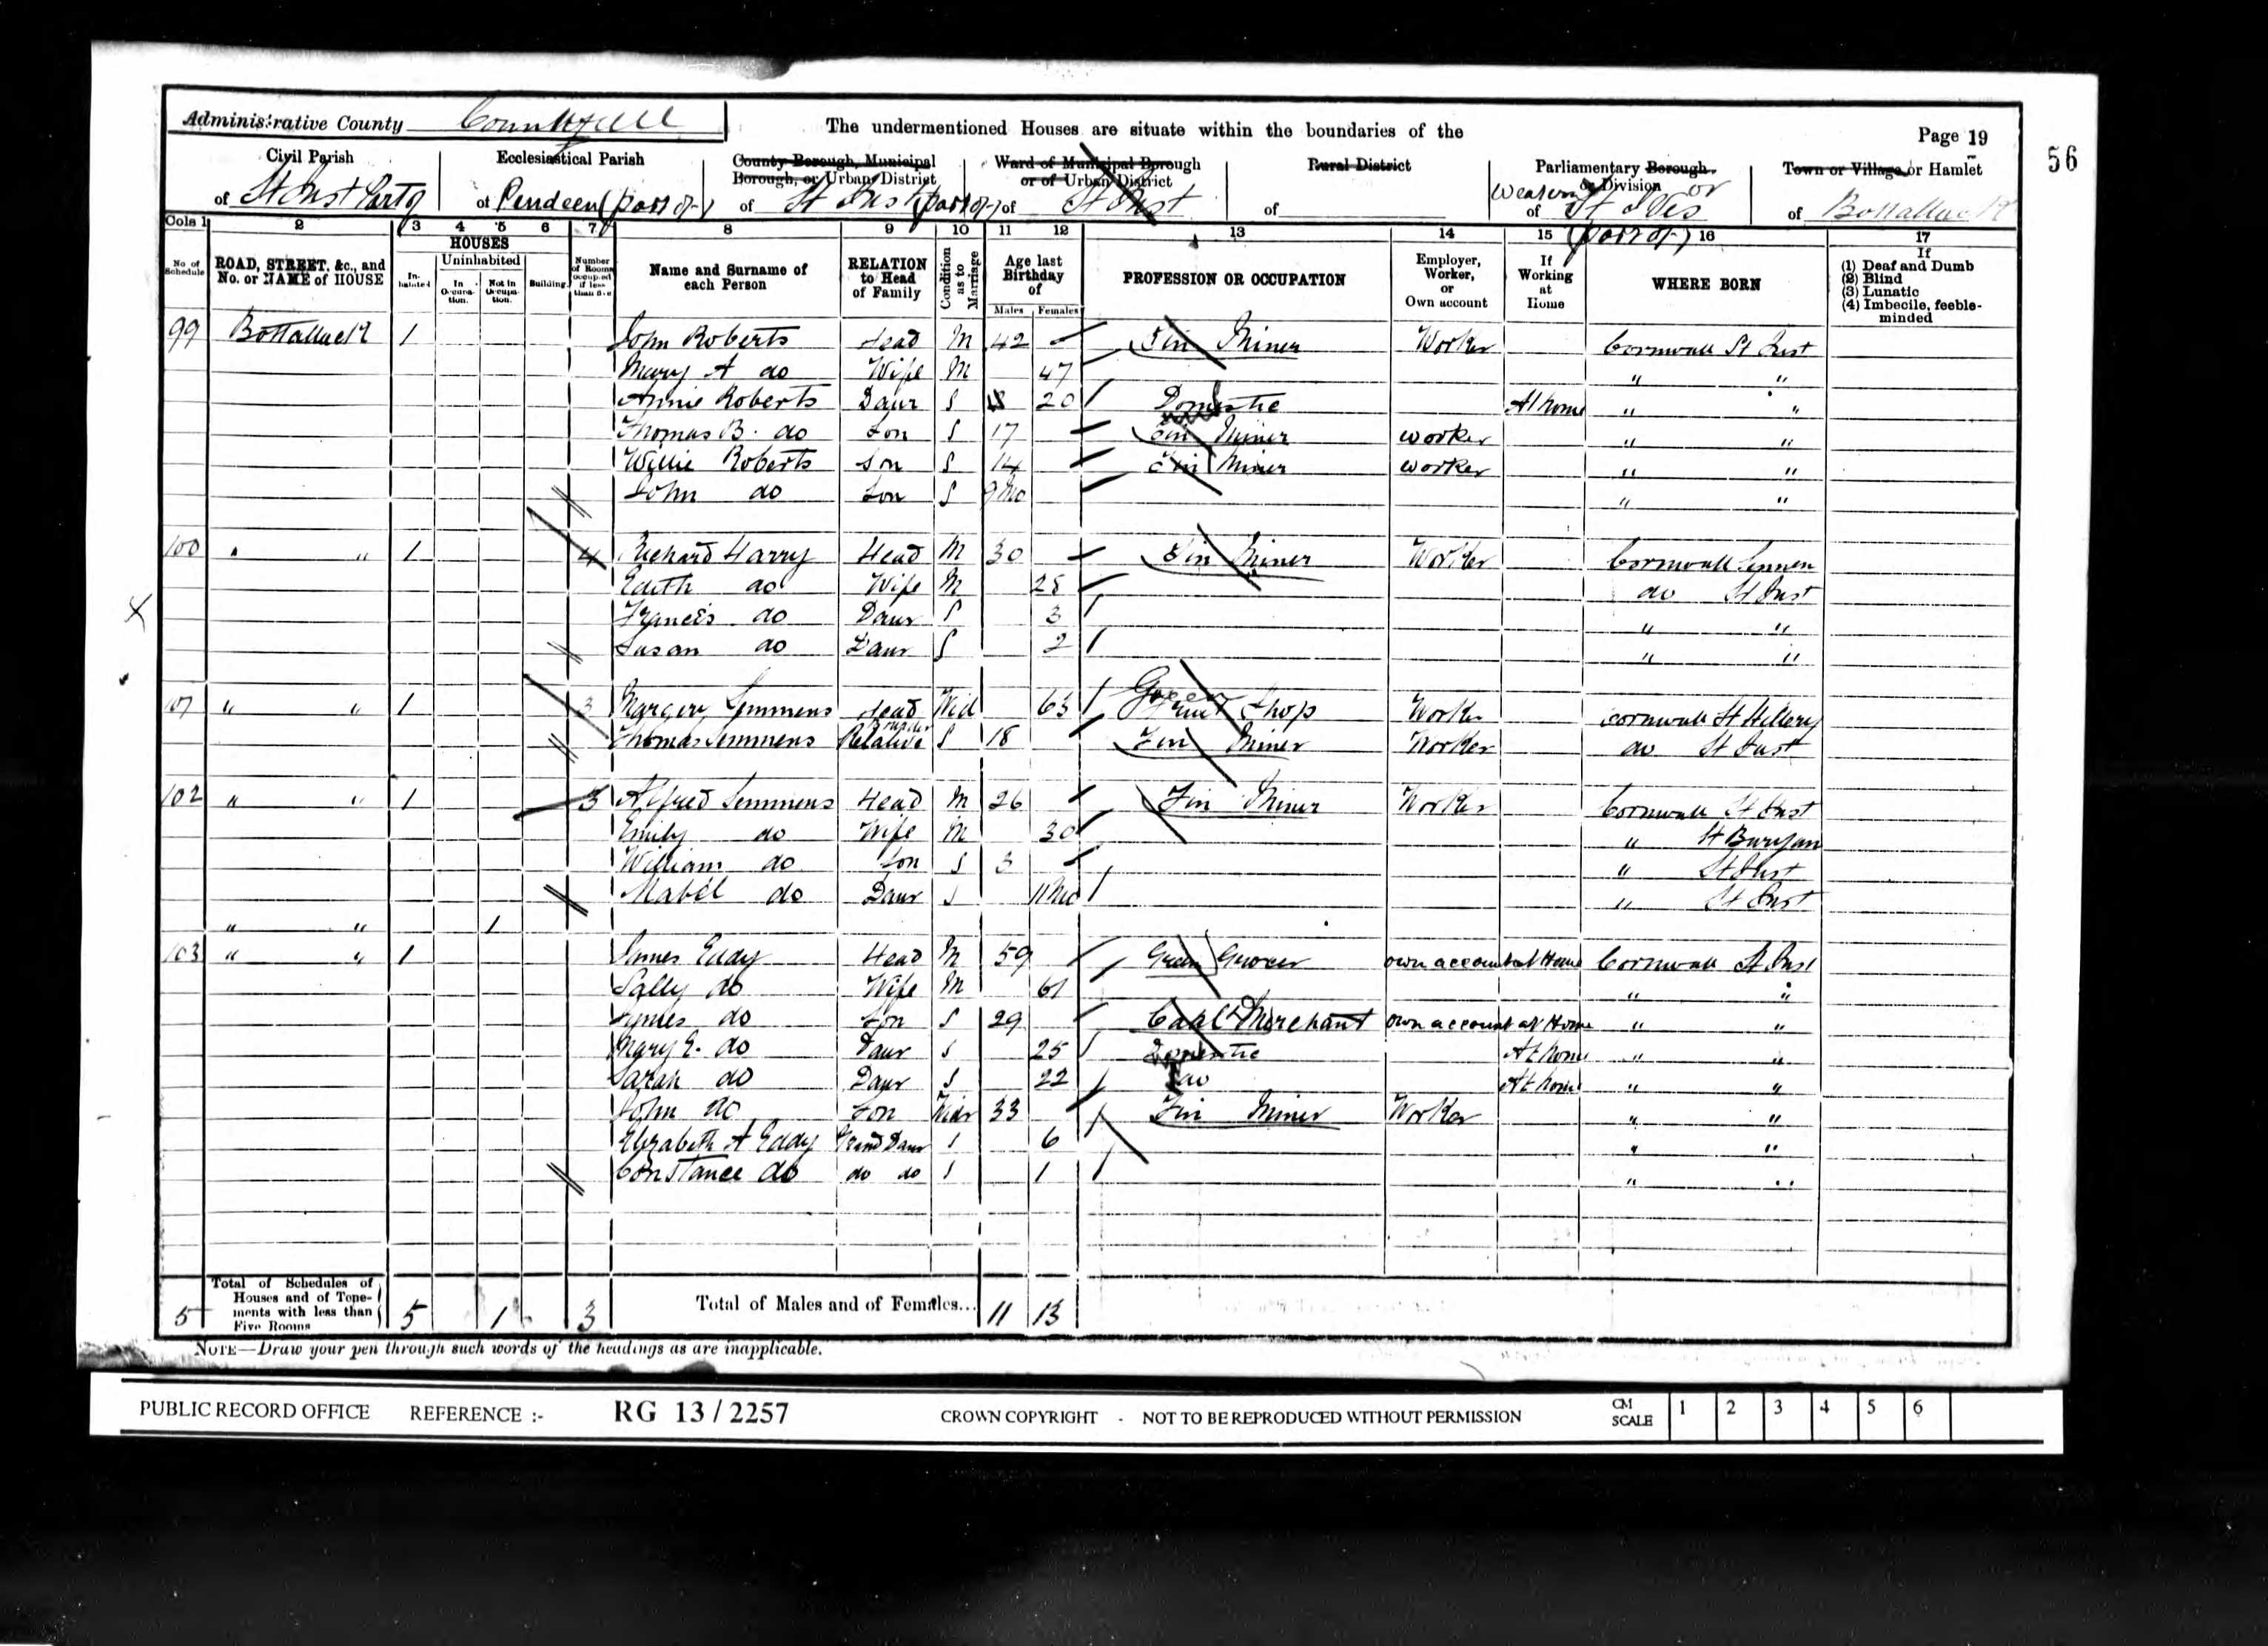 Administrative County Cornwall
The undermentioned Houses are situate within the boundaries of the
Page 19
56
Civil Parish of St Just Part of
Ecclesiastical Parish of Pendeen (part of)
County Borough, Municipal Borough, or Urban District of St Just (part of)
Ward of Municipal Borough or of Urban District of St Just
Rural District of
Parliamentary Borough or Division of Western or St Ives (part of)
Town or Village or Hamlet of Bottallack
Cols 1 2 3 4 5 6 7 8 9 10 11 12 13 14 15 16 17
No of Schedule
ROAD, STREET, &c., and No. or NAME of HOUSE
HOUSES
Inhabited
Uninhabited
In Occupation.
Not in Occupation.
Building.
Number of Rooms occupied if less than five
Name and Surname of each Person
RELATION to Head of Family
Condition as to Marriage
Age last Birthday of
Males Females
PROFESSION OR OCCUPATION
Employer, Worker, or Own account
If Working at Home
WHERE BORN
If
(1) Deaf and Dumb
(2) Blind
(3) Lunatic
(4) Imbecile, feeble-minded
99 Bottallack 1 John Roberts Head M 42 Tin Miner Worker Cornwall St Just
Mary A do Wife M 47 " "
Annie Roberts Daur S 20 Domestic At home " "
Thomas B. do Son S 17 Tin Miner worker " "
Willie Roberts Son S 14 Tin Miner worker " "
John do Son S 9 mo " "
100 " " 1 4 Richard Harry Head M 30 Tin Miner Worker Cornwall Sennen
Edith do Wife M 28 do St Just
Francis do Daur S 3 " "
Susan do Daur S 2 " "
101 " " 1 3 Margery Semmens Head Wid 63 Green Fruit Shop Worker Cornwall St Hillery
Thomas Semmens Boarder Relative S 18 Tin Miner Worker do St Just
102 " " 1 3 Alfred Semmens Head M 26 Tin Miner Worker Cornwall St Just
Emily do Wife M 30 " St Buryan
William do Son S 3 " St Just
Mabel do Daur S 11 mo " St Just
" " 1
103 " " 1 James Eddy Head M 59 Green Grocer own account at Home Cornwall St Just
Sally do Wife M 61 " "
James do Son S 29 Coal Merchant own account at Home " "
Mary E. do Daur S 25 Domestic At home " "
Sarah do Daur S 22 do At home " "
John do Son Widr 33 Tin Miner Worker " "
Elizabeth A Eddy Grand Daur S 6 " "
Constance do do do S 1 " "
5 Total of Schedules of Houses and of Tenements with less than Five Rooms 5 1 3 Total of Males and of Females... 11 13
NOTE—Draw your pen through such words of the headings as are inapplicable.
PUBLIC RECORD OFFICE REFERENCE :- RG 13/2257 CROWN COPYRIGHT - NOT TO BE REPRODUCED WITHOUT PERMISSION CM SCALE 1 2 3 4 5 6